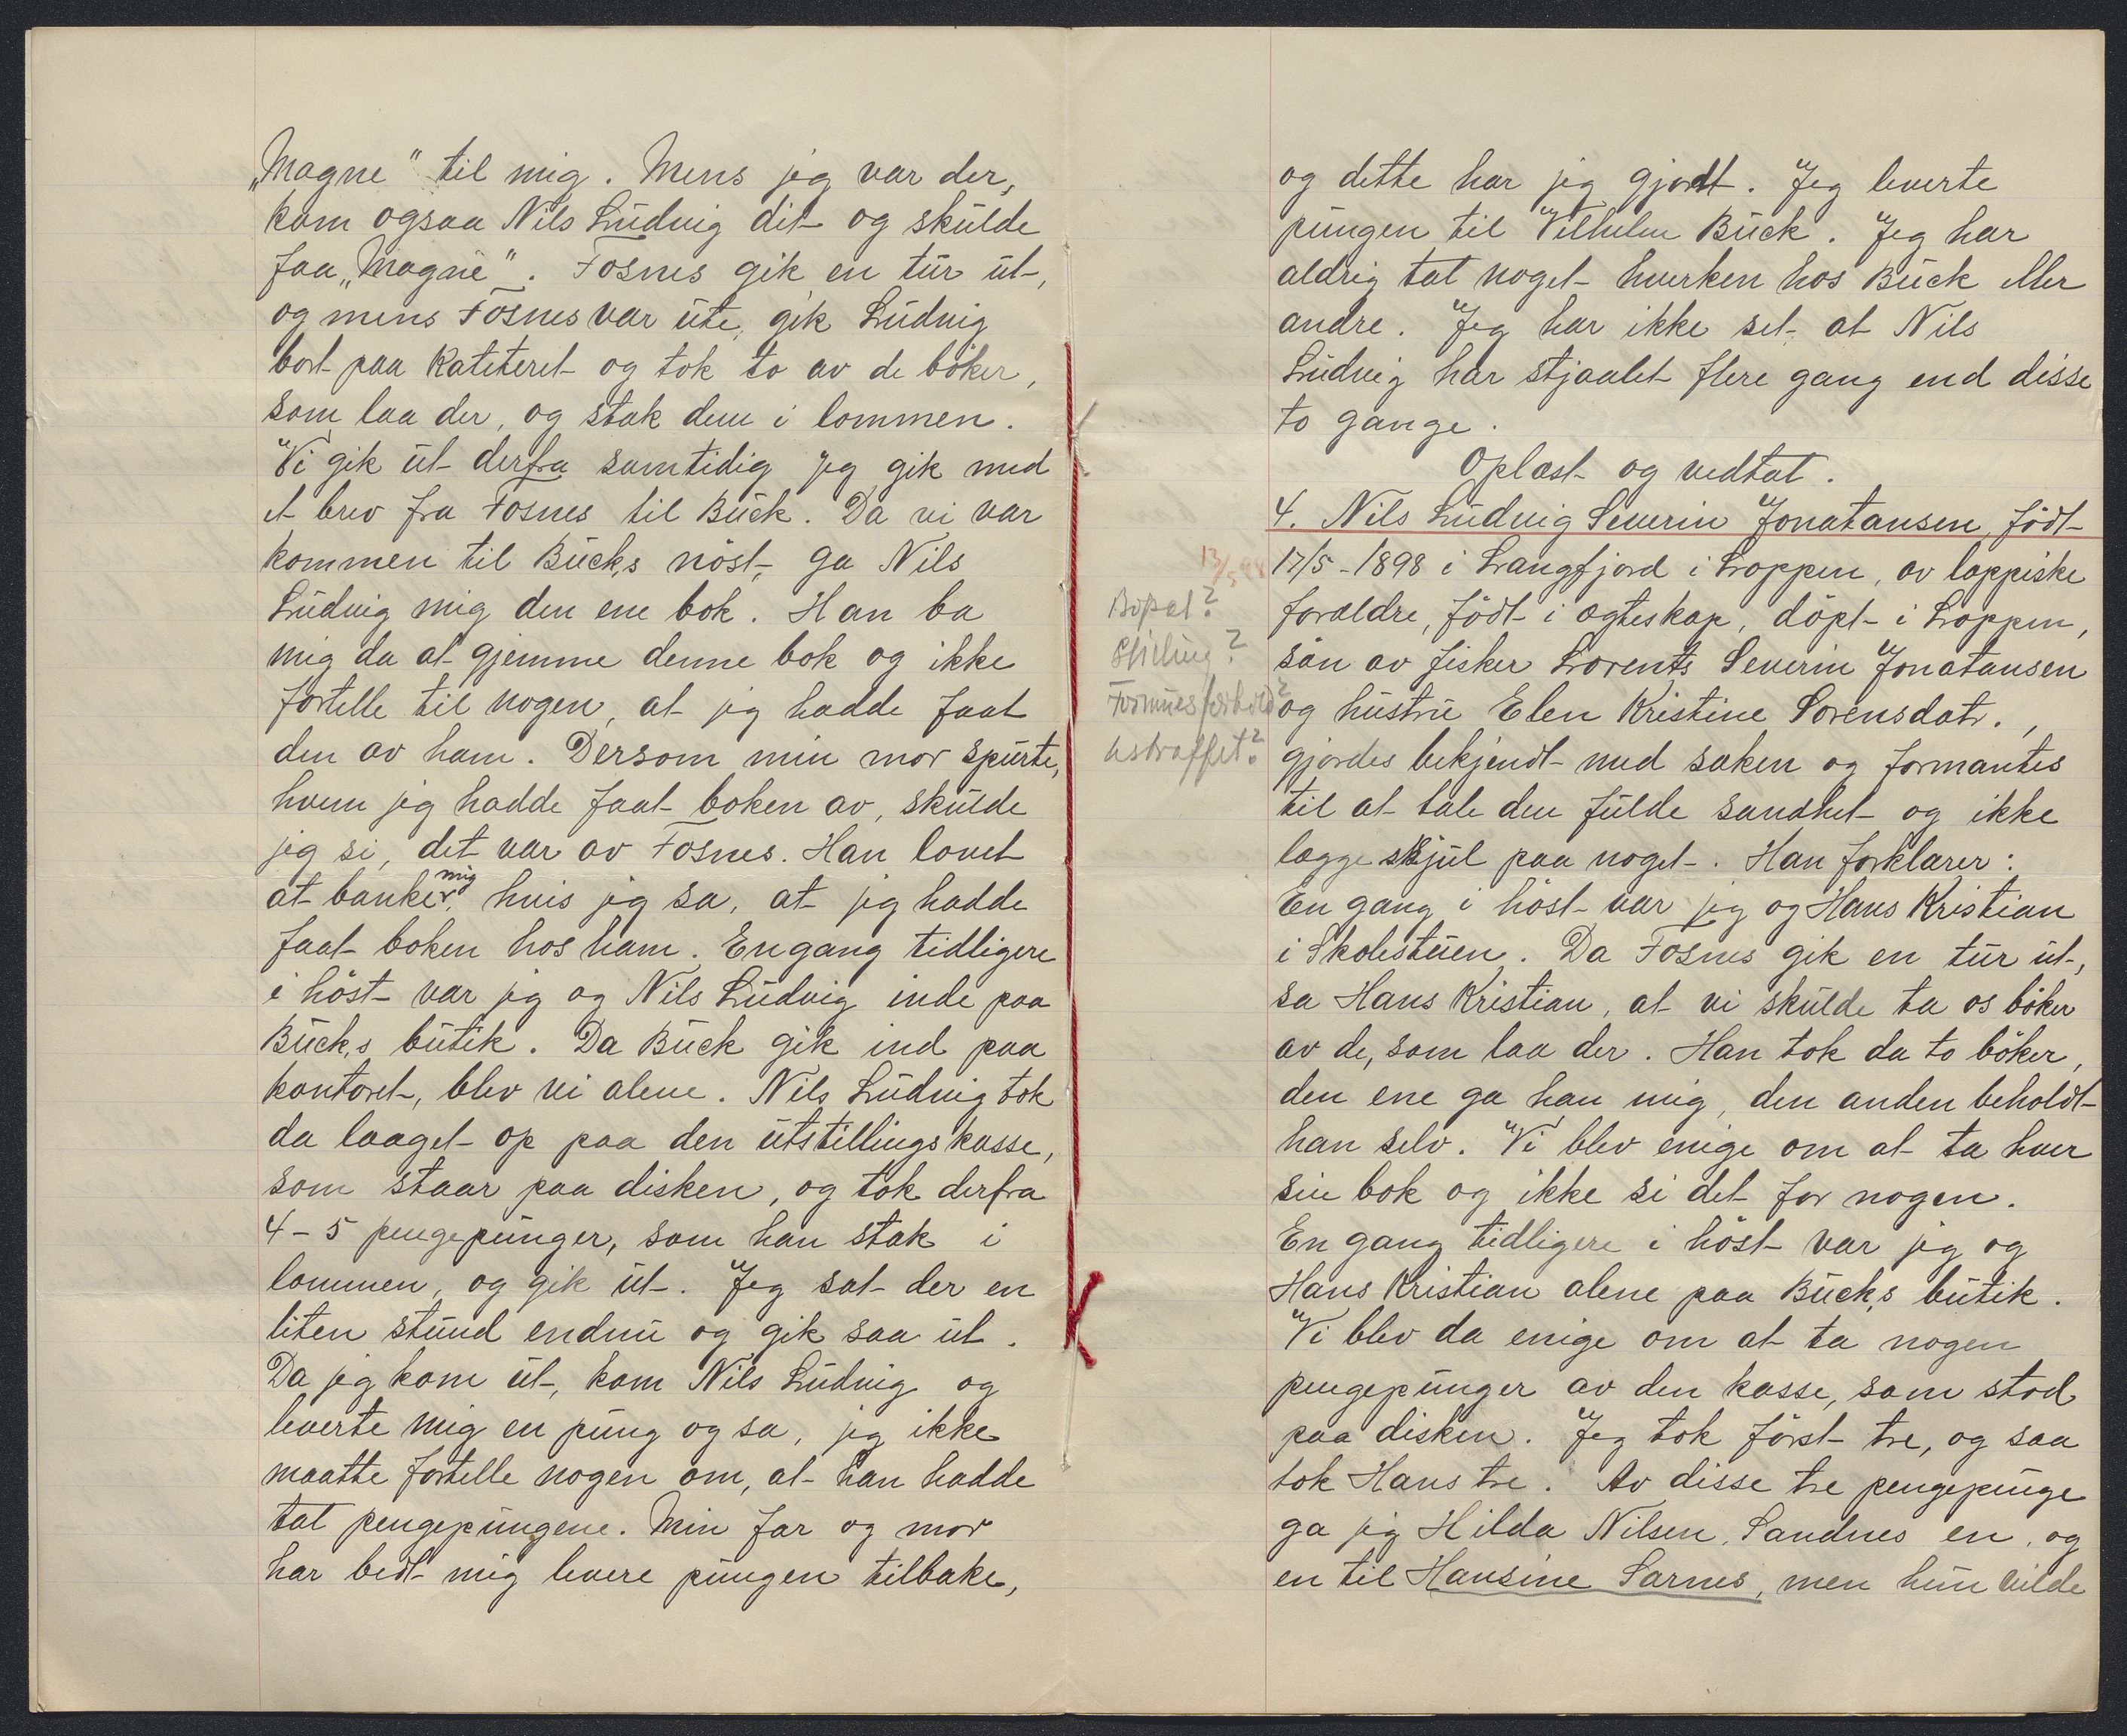 „Magne" til mig. Mens jeg var der,
kom ogsaa Nils Ludvig dit og skulde
faa „Magne". Fosnes gik en tur ut,
og mens Fosnes var ute, gik Ludvig
bort paa Kateteret og tok to av de böker,
som laa der, og stak dem i lommen.
Vi gik ut derfra samtidig jeg gik med
et brev fra Fosnes til Buck. Da vi var
kommen til Buck,s nöst, ga Nils
Ludvig mig den ene bok. Han ba
mig da at gjemme denne bok og ikke
fortelle til nogen, at jeg hadde faat
den av ham. Dersom min mor spurte,
hvem jeg hadde faat boken av, skulde
jeg si, det var av Fosnes. Han lovet
at banker mig, hvis jeg sa, at jeg hadde
faat boken hos ham. Engang tidligere
i höst var jeg og Nils Ludvig inde paa
Buck,s butik. Da Buck gik ind paa
kontoret, blev vi alene. Nils Ludvig tok
da laaget op paa den utstillingskasse,
som staar paa disken, og tok derfra
4-5 pengepunger, som han stak i
lommen, og gik ut. Jeg sat der en
liten stund endnu og gik saa ut.
Da jeg kom ut, kom Nils Ludvig og
leverte mig en pung og sa, jeg ikke
maatte fortelle nogen om, at han hadde
tat pengepungene. Min far og mor
har bedt mig levere pungen tilbake,
og dette har jeg gjordt. Jeg leverte
pungen til Vilhelm Buck. Jeg har
aldrig tat noget hverken hos Buck eller
andre. Jeg har ikke set, at Nils
Ludvig har stjaalet flere gang end disse
to gange.
Oplæst og vedtat.
4. Nils Ludvig Severin Jonatansen, födt
13/5 98
17/5-1898 i Langfjord i Loppen, av lappiske
Bopæl?
forældre, födt i ægteskap, döpt i Loppen,
Stilling?
sön av fisker Lorents Severin Jonatansen
Formuesforhold?
og hustru Elen Kristine Sorensdatr.,
ustraffet?
gjordes bekjendt med saken og formantes
til at tale den fulde sandhet og ikke
lægge skjul paa noget. Han forklarer:
En gang i höst var jeg og Hans Kristian
i Skolestuen. Da Fosnes gik en tur ut,
sa Hans Kristian, at vi skulde ta os böker
av de, som laa der. Han tok da to böker,
den ene ga han mig, den anden beholdt
han selv. Vi blev enige om at ta hver
sin bok og ikke si det for nogen.
En gang tidligere i höst var jeg og
Hans Kristian alene paa Buck,s butik.
Vi blev da enige om at ta nogen
pengepunger av den kasse, som stod
paa disken. Jeg tok först tre, og saa
tok Hans tre. Av disse tre pengepunge
ga jeg Hilda Nilsen, Sandnes en, og
en til Hansine Sarnes, men hun vilde